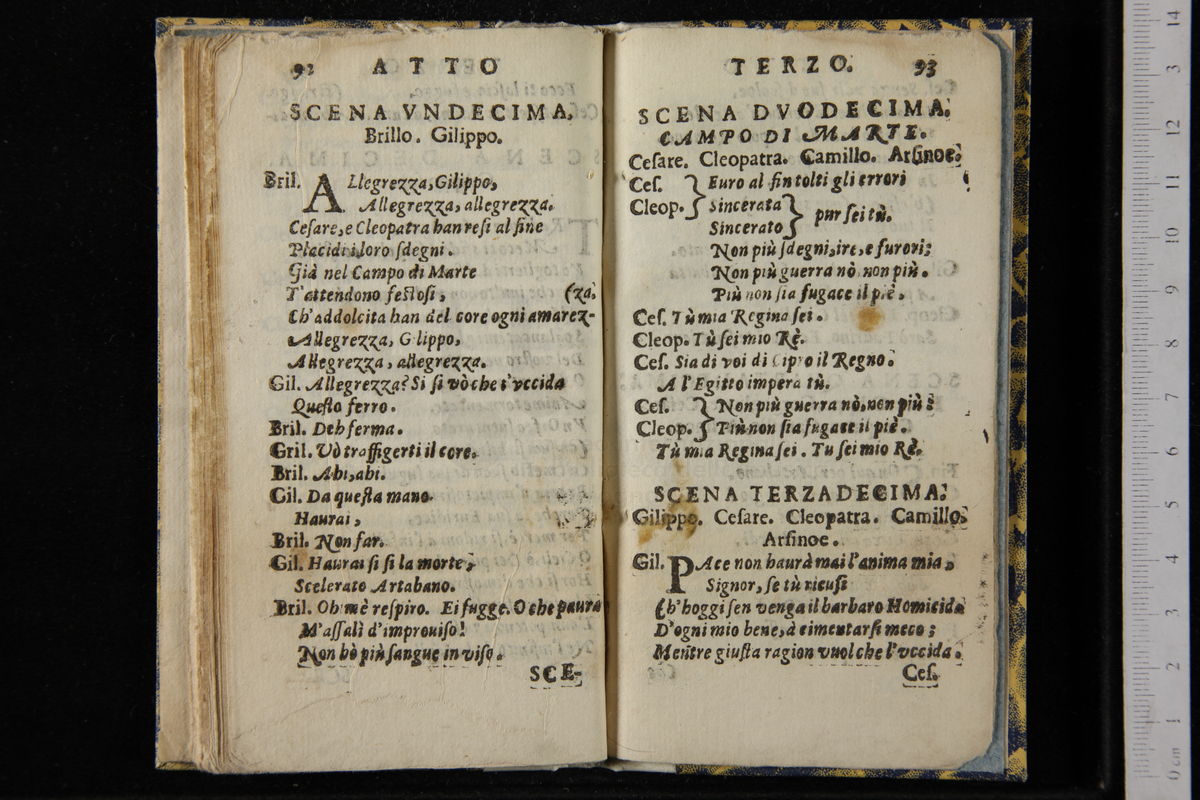 92 ATTO
SCENA VNDECIMA.
Brillo. Gilippo.
Bril. ALlegrezza, Gilippo,
Allegrezza, allegrezza.
Cesare, e Cleopatra han resi al fine
Placidi i loro sdegni.
Già nel Campo di Marte
T'attendono festosi, (za.
Ch'addolcita han del core ogni amarez-
Allegrezza, G lippo,
Allegrezza, allegrezza.
Gil. Allegrezza? Si si vò che t'vccida
Questo ferro.
Bril. Deh ferma.
Gril. Vò traffigerti il core.
Bril. Ahi, ahi.
Gil. Da questa mano
Haurai,
Bril. Non far.
Gil. Haurai si si la morte,
Scelerato Artabano.
Bril. Oh mè respiro. Ei fugge. O che paura
M'assalì d'improuiso!
Non hò più sangue in viso.
SCE-
TERZO. 93
SCENA DVODECIMA.
CAMPO DI MARTE.
Cesare. Cleopatra. Camillo. Arsinoe.
Ces. Euro al fin tolti gli errori
Cleop. Sincerata
Sincerato pur sei tù.
Non più sdegni, ire, e furori;
Non più guerra nò, non più.
Più non sia fugace il piè.
Ces. Tù mia Regina sei.
Cleop. Tù sei mio Rè.
Ces. Sia di voi di Cipro il Regno.
A l'Egitto impera tù.
Ces. Non più guerra nò, non più
Cleop. Più non sia fugace il piè.
Tù mia Regina sei. Tu sei mio Rè.
SCENA TERZADECIMA.
Gilippo. Cesare. Cleopatra. Camillo.
Arsinoe.
Gil. PAce non haurà mai l'anima mia,
Signor, se tù ricusi
Ch'hoggi sen venga il barbaro Homicida
D'ogni mio bene, à cimentarsi meco;
Mentre giusta ragion vuol che l'vccida.
Ces.